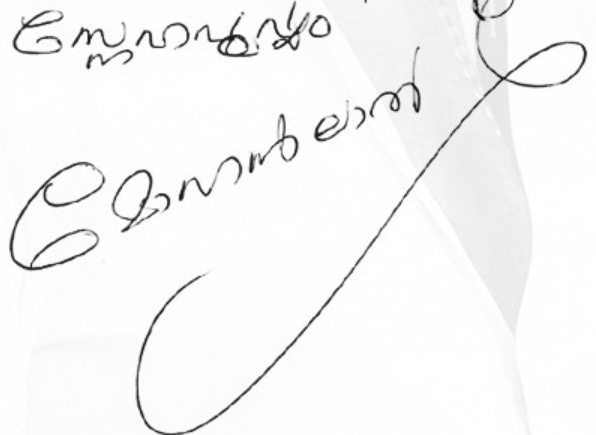 സ്നേഹപൂർവ്വം
മോഹൻലാൽ